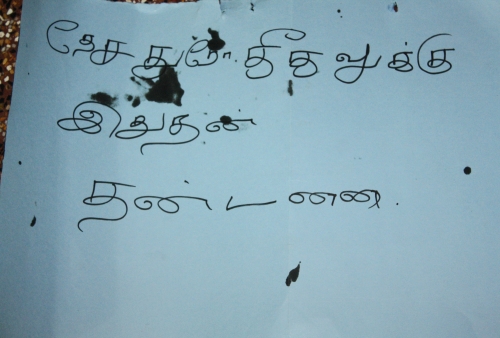 தேச துரோகிதவுக்கு
இதுதன்
தன்டனை.